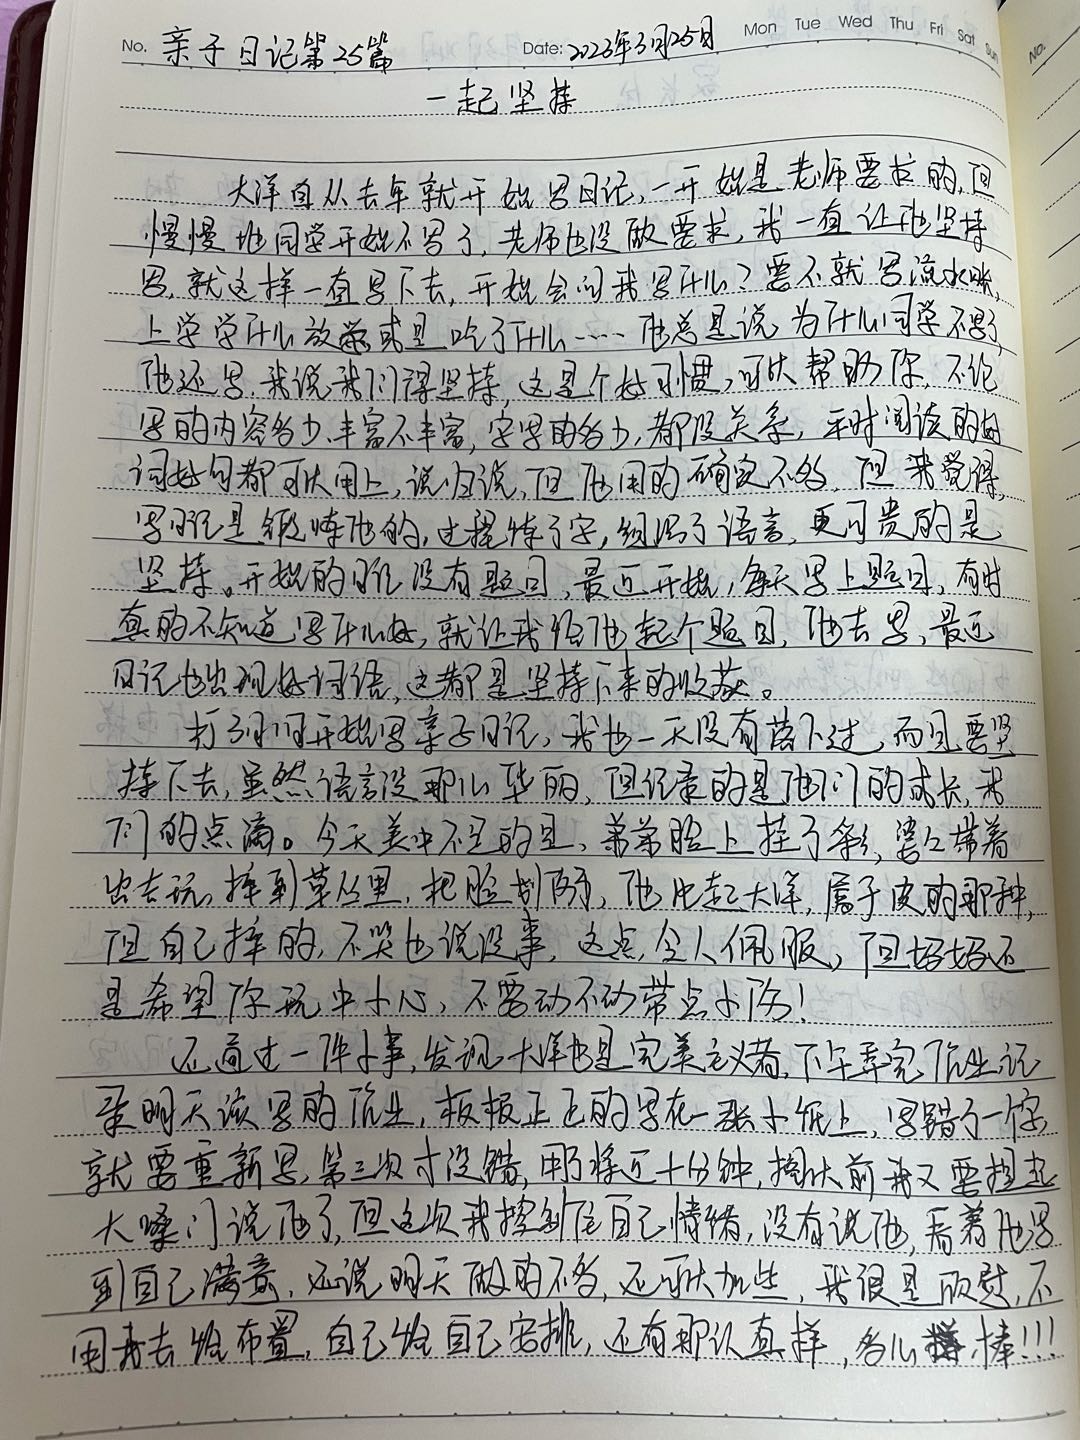 No. 亲子日记第25篇 Date: 2023年3月25日 Mon Tue Wed Thu Fri Sat Sun
No.
一起坚持
大洋自从去年就开始写日记,一开始是老师要求的,但
慢慢地同学开始不写了,老师也没做要求,我一直让他坚持
写,就这样一直写下去,开始会问我写什么?要不就写流水账,
上学学什么放学或是吃了什么……他总是说为什么同学不写了,
他还写,我说我们得坚持,这是个好习惯,可以帮助你,不论
写的内容多少,丰富不丰富,字写的多少,都没关系,平时阅读的好
词好句都可以用上,说归说,但他用的确实不多,但我觉得,
写日记是锻炼他的,过程练了字,组织了语言,更可贵的是
坚持。开始的日记没有题目,最近开始,每天写上题目,有时
真的不知道写什么好,就让我给他起个题目,他去写,最近
日记也出现好词语,这都是坚持下来的收获。
打3月1日开始写亲子日记,我也一天没有落下过,而且要坚
持下去,虽然语言没那么华丽,但记录的是他们的成长,我
们的点滴。今天美中不足的是,弟弟脸上挂了彩,婆婆带着
出去玩,摔到草丛里,把脸划伤了,他比起大洋,属于皮的那种,
但自己摔的,不哭也说没事,这点令人佩服,但妈妈还
是希望你玩中小心,不要动不动带点小伤!
还通过一件小事,发现大洋也是完美主义者,下午弄完作业记
录明天该写的作业,板板正正的写在一张小纸上,写错了一个字
就要重新写,第三次才没错,用了将近十分钟,搁以前我又要提起
大嗓门说他了,但这次我控制住自己情绪,没有说他,看着他写
到自己满意,还说明天做的不多,还可以加些,我很是欣慰,不
用我去给布置,自己给自己安排,还有那认真样,多么棒!!!